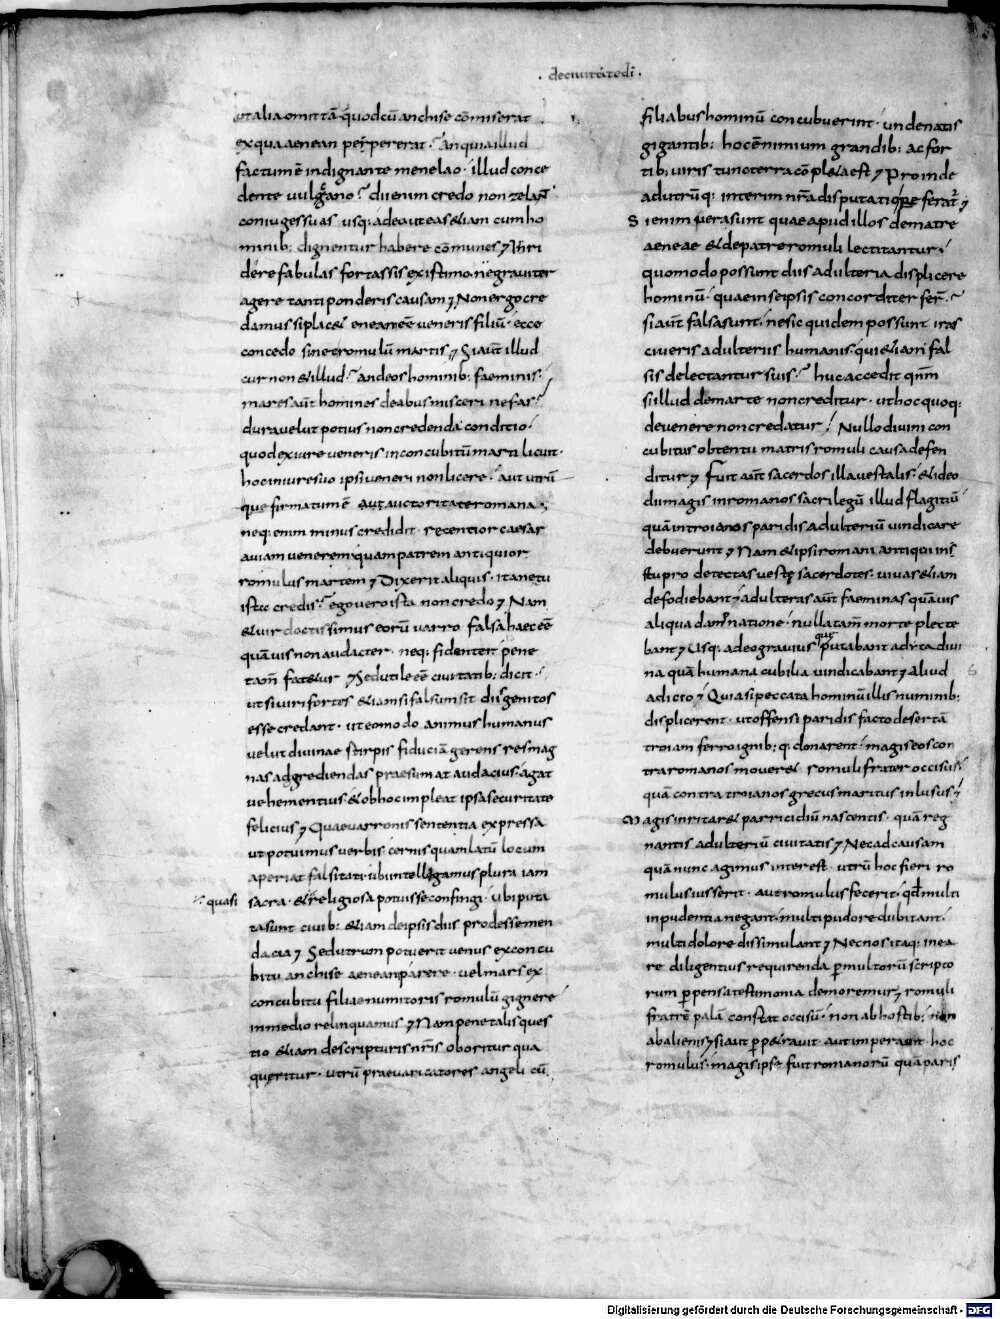 · deciuitatedī ·
ut alia omittā quodcū anchise cōmiserat
ex qua aenean peperat · an quia illud
factum ē indignante menelao · illud conce
dente uulgano · dii enim credo non zelant
coniuges suas · usq; adeo ut eas &iam cum ho
minib; dignentur habere cōmunes
dere fabulas fortassis existimor · ne grauiter
agere tanti ponderis causam · Non ergo cre
damus si plac& enean eē ueneris filiū · ecce
concedo sine& romulū martis · Si aūt illud
cur non & illud · an deos hominib; faeminis ·
mares aūt homines deabus misceri nefas ·
dura uel ut potius non credenda conditio ·
quod ex iure ueneris in concubitū marti licuit ·
hoc in iure suo ipsi ueneri non licere · aut utrū
que firmatum ē auctoritate romana ·
neq; enim minus credidit · recentior caesar
auiam uenerem quam patrem antiquior
romulus martem · Dixerit aliquis · itane tu
ista credis · ego uero ista non credo · Nam
& uir doctissimus eorū uarro falsa haec eē
quāuis non audacter · neq; fidenter pene
tam̄ fat&ur · Sed utile eē ciuitatib; dicit ·
ut si uiri fortes &iam si falsum sit diis genitos
esse credant · ut eo modo animus humanus
uelut diuinae stirpis fiduciā gerens res mag
nas adgrediendas praesumat audacius · agat
uehementius · & ob hoc impleat ipsa securitate
felicius · Quae uarronis sententia expressa
ut potui meis uerbis cernis quam latū locum
aperiat falsitati · ubi intelligamus plura iam
quasi
sacra · & religiosa potuisse confingi · ubi puta
ta sunt ciuib; &iam de ipsis diis prodesse men
dacia · Sed utrum potuerit uenus ex concu
bitu anchise aenean parere · uel mars ex
concubitu filiae numitoris romulū gignere
in medio relinquamus · Nam pene talis ques
tio &iam de scripturis nr̄is oboritur qua
queritur · utrū praeuaricatores angeli cū
filiabus hominū concubuerint · unde natis
gigantib; hoc ē nimium grandib; ac for
tib; uiris tunc terra cōpl&a est · Proinde
ad utrūq; interim nr̄a disputatio referat̄
Si enim uera sunt quae apud illos de matre
aeneae & de patre romuli lectitantur ·
quomodo possunt diis adulteria displicere
hominū · quae in se ipsis concorditer fer̄ ·
si aūt falsa sunt · nec sic quidem possunt irasc
ci ueris adulteriis humanis · qui &iam fal
sis delectantur suis · huc accedit qm̄
si illud de marte non creditur · ut hoc quoq;
de uenere non credatur · Nullo diuini con
cubitus obtentu matris romuli causa defen
ditur · Fuit aūt sacerdos illa uestalis · & ideo
dii magis in romanos sacrilegū illud flagitiū
quā in troianos paridis adulteriū uindicare
debuerunt · Nam & ipsi romani antiqui in s
tupro detectas uestę sacerdotes · uiuas &iam
defodiebant · adulteras aūt faeminas quāuis
aliqua damnatione · nulla tam̄ morte plecte
bant · Usq; adeo grauius quę putabant adyta diui
na quā humana cubilia uindicabant · Aliud
adicio · Quia si peccata hominū illis numinib;
displicerent · ut offensi paridis facto desertā
troiam ferro ignib; q; donarent · magis eos con
tra romanos mouer& · romuli frater occisus ·
quā contra troianos grecus maritus inlusus ·
Magis inritar& parricidiū nascentis · quā reg
nantis adulteriū ciuitatis · Nec ad causam
quā nunc agimus interest · utrū hoc fieri ro
mulus iusserit · aut romulus fecerit · qđ multi
inpudentia negant · multi pudore dubitant ·
multi dolore dissimulant · Nec nos itaq; in ea
re diligentius requirenda p̄ multorū scripto
rum p̄pensa testimonia demoremur · romuli
fratrē palā constat occisū · non ab hostib; non
ab alienis · si aut p̄p&rauit · aut imperauit · hoc
romulus · magis ipse fuit romanorū quā paris